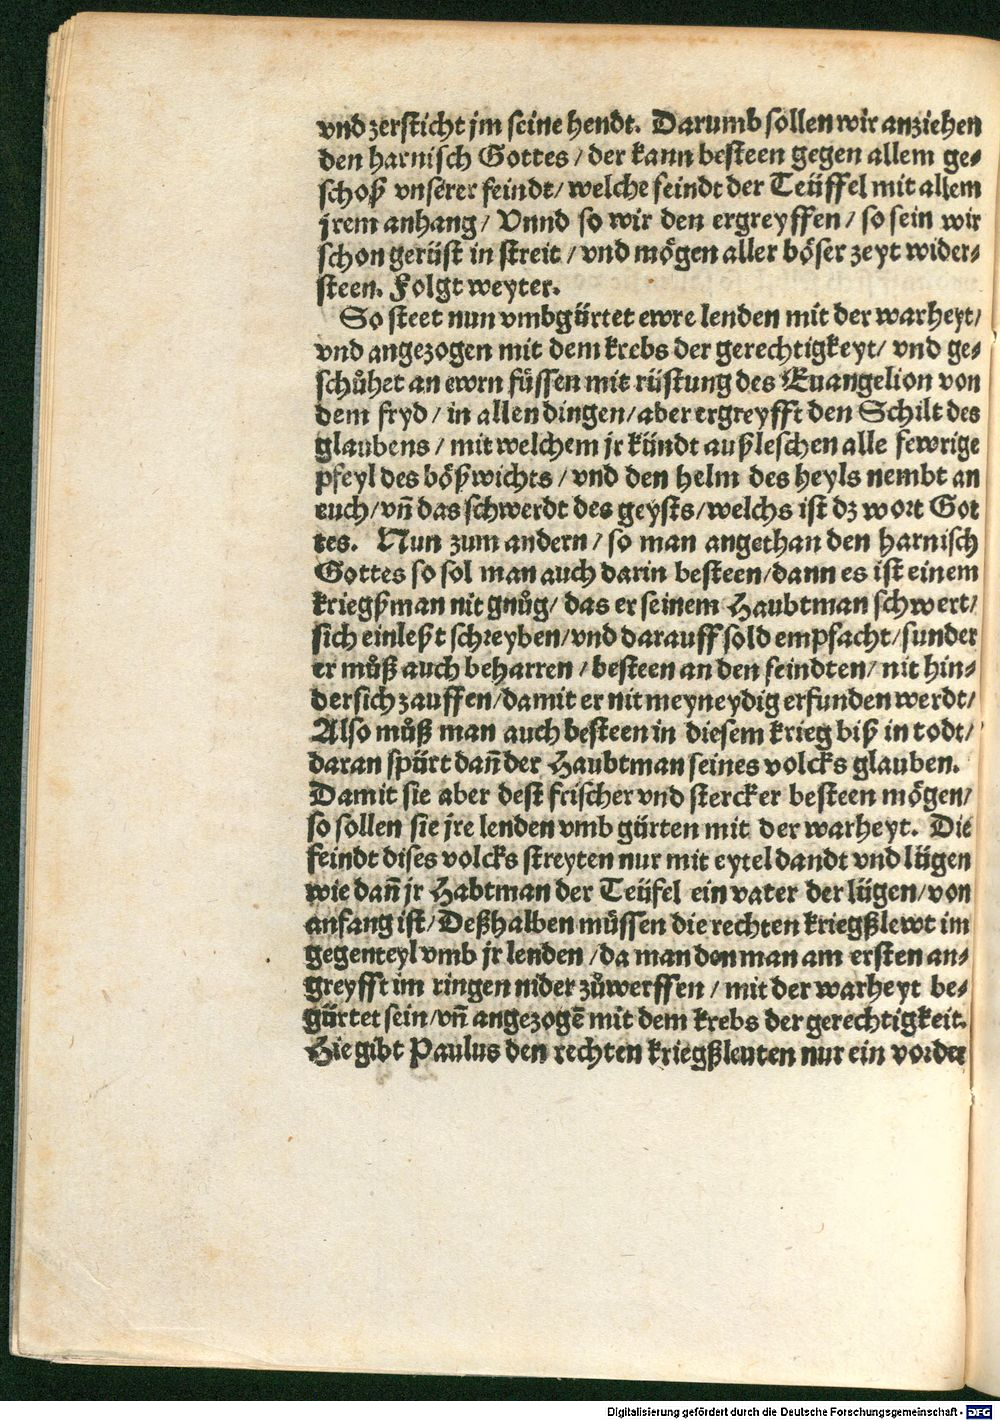 vnd zersticht jm seine hendt. Darumb sollen wir anziehen
den harnisch Gottes / der kann besteen gegen allem ge⸗
schoß vnserer feindt / welche seindt der Teüffel mit allem
jrem anhang / Vnnd so wir den ergreyffen / so sein wir
schon gerüst in streit / vnd mögen aller böser zeyt wider⸗
steen. Folgt weyter.
So steet nun vmbgürtet ewre lenden mit der warheyt /
vnd angezogen mit dem krebs der gerechtigkeyt / vnd ge⸗
schůhet an ewrn füssen mit rüstung des Euangelion von
dem fryd / in allen dingen / aber ergreyfft den Schilt des
glaubens / mit welchem jr kündt außleschen alle fewrige
pfeyl des bößwichts / vnd den helm des heyls nembt an
euch / vn̄ das schwerdt des geysts / welchs ist dz wort Got
tes. Nun zum andern / so man angethan den harnisch
Gottes so sol man auch darin besteen / dann es ist einem
kriegßman nit gnůg / das er seinem Haubtman schwert /
sich einleßt schreyben / vnd darauff sold empfacht / sunder
er můß auch beharren / besteen an den feindten / nit hin⸗
dersich zauffen / damit er nit meyneydig erfunden werdt /
Also můß man auch besteen in diesem krieg biß in todt /
daran spürt dan̄ der Haubtman seines volcks glauben.
Damit sie aber dest frischer vnd stercker besteen mögen /
so sollen sie jre lenden vmb gürten mit der warheyt. Die
feindt dises volcks streyten nur mit eytel dandt vnd lügen
wie dan̄ jr Habtman der Teüfel ein vater der lügen / von
anfang ist / Deßhalben müssen die rechten kriegßlewt im
gegenteyl vmb jr lenden / da man den man am ersten an⸗
greyfft im ringen nider zůwerffen / mit der warheyt be⸗
gürtet sein / vn̄ angezogē mit dem krebs der gerechtigkeit.
Hie gibt Paulus den rechten kriegßleuten nur ein vorder
Digitalisierung gefördert durch die Deutsche Forschungsgemeinschaft - DFG